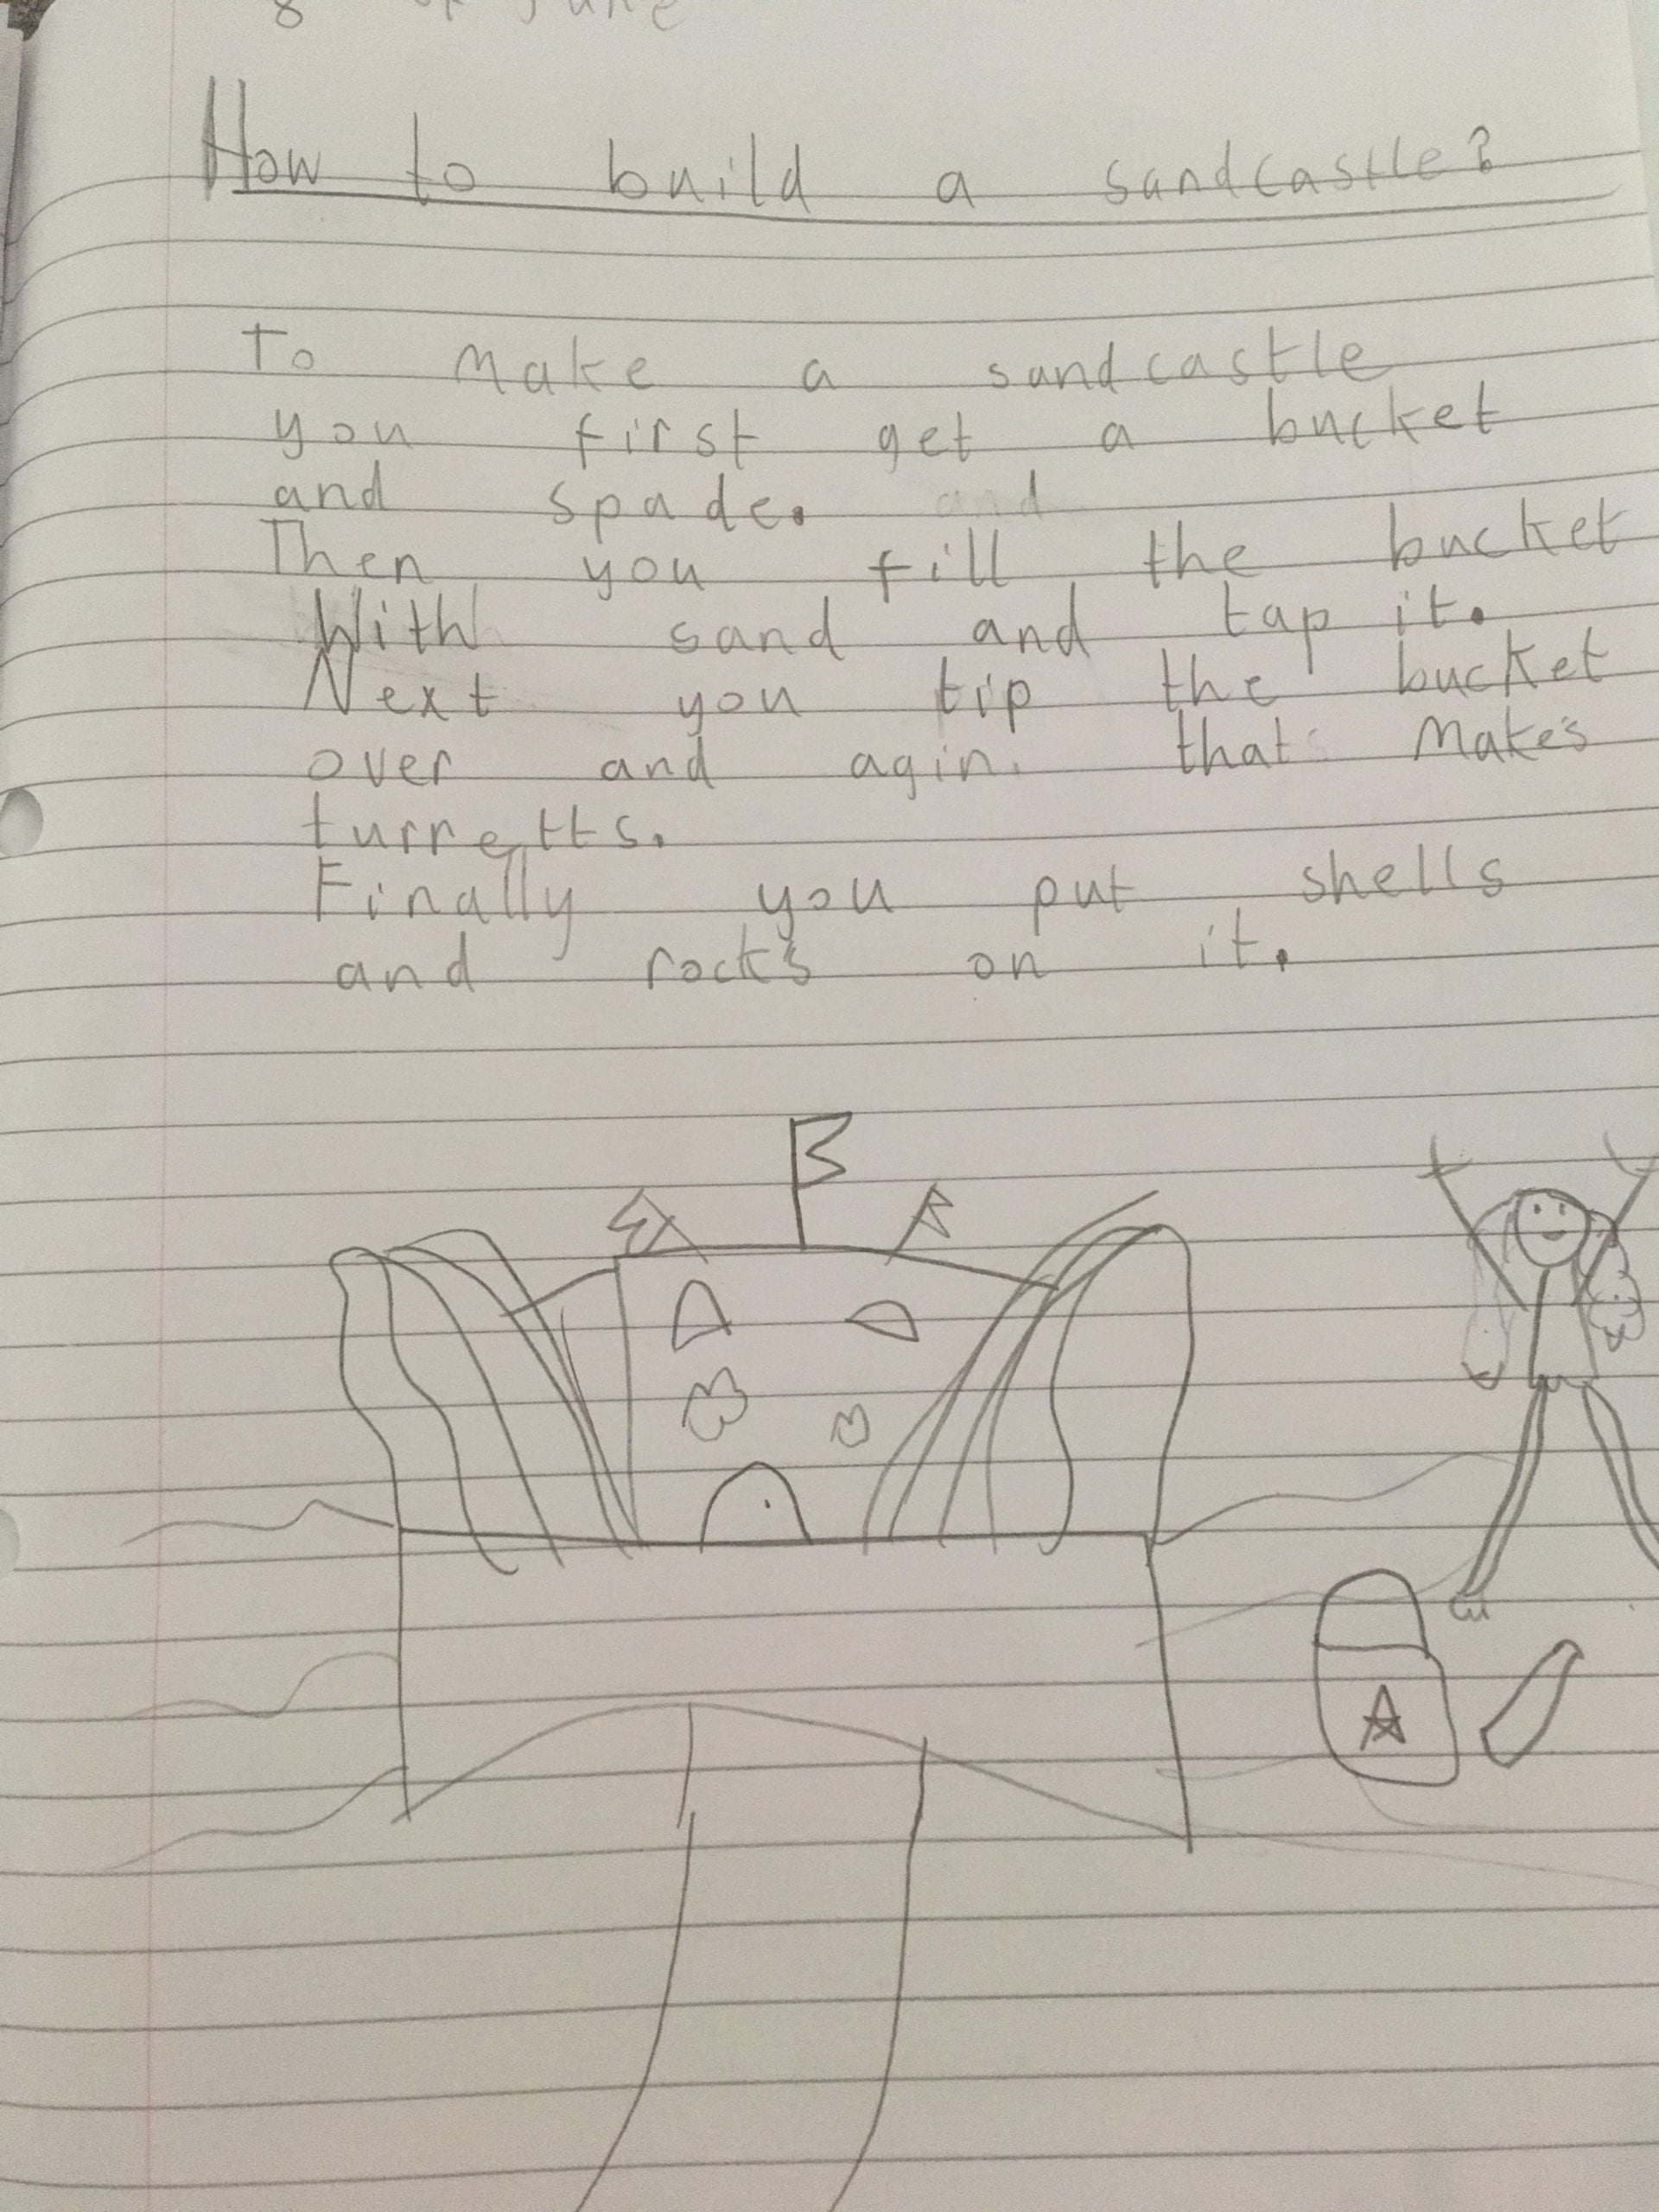 8 of June
How to build a sandcastle?
To make a sandcastle
you first get a bucket
and spade. and
Then you fill the bucket
With sand and tap it.
Next you tip the bucket
over and agin. that makes
turretts.
Finally you put shells
and rocks on it.
A